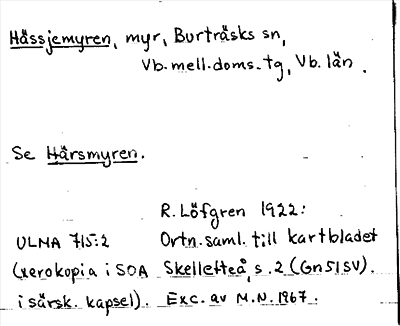 Hässjemyren, myr, Burträsks sn,
Vb. mell. doms. tg, Vb. län.
Se Hårsmyren.
R. Löfgren 1922:
ULMA 715:2 Ortn. saml. till kartbladet
(xerokopia i SOA Skellefteå, s. 2 (Gn51SV).
i särsk. kapsel). Exc. av M.N. 1967.